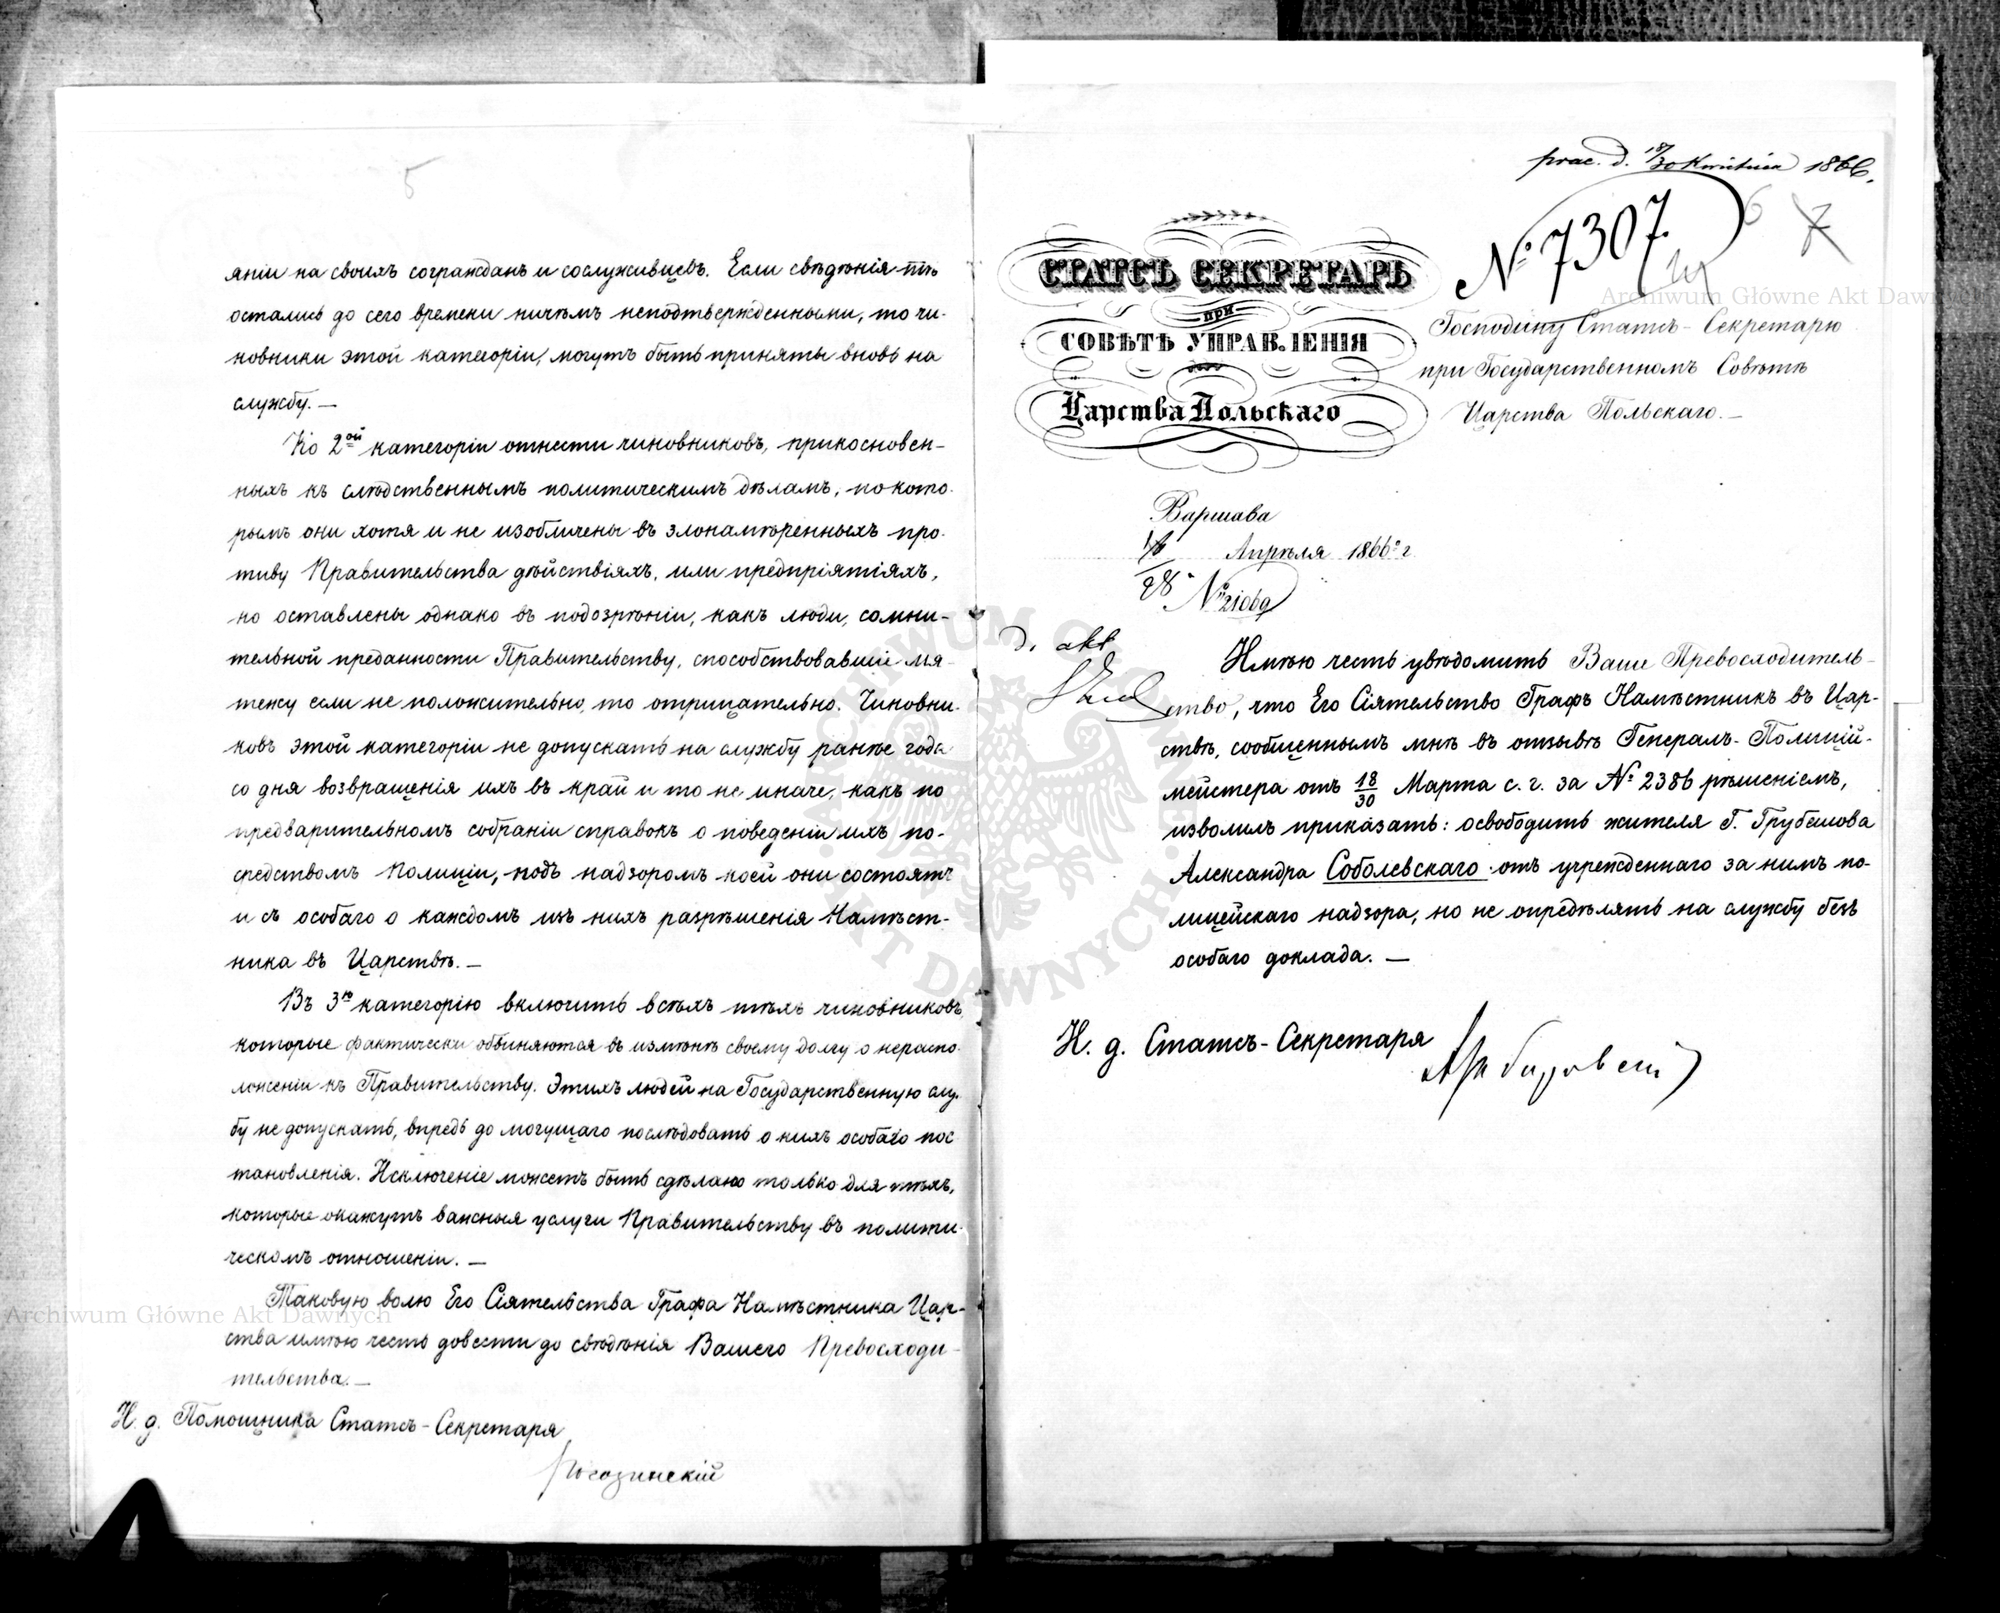 5
яніи на своихъ согражданъ и сослуживцевъ. Если свѣдѣнія тѣ
остались до сего времени ничѣмъ неподтвержденными, то чи-
новники этой категоріи, могутъ быть приняты вновь на
службу. —
Ко 2ой категоріи отнести чиновниковъ, прикосновен-
ныхъ къ слѣдственнымъ политическимъ дѣламъ, по кото-
рымъ они хотя и не изобличены въ злонамѣренныхъ про-
тиву Правительства дѣйствіяхъ, или предпріятіяхъ,
но оставлены однако въ подозрѣніи, какъ люди, сомни-
тельной преданности Правительству, способствовавшіе мя-
тежу если не положительно, то отрицательно. Чиновни-
ковъ этой категоріи не допускать на службу ранѣе года
со дня возвращенія ихъ въ край и то не иначе, какъ по
предварительномъ собраніи справокъ о поведеніи ихъ по-
средствомъ Полиціи, подъ надзоромъ коей они состоятъ
и съ особаго о каждомъ изъ нихъ разрѣшенія Намѣст-
ника въ Царствѣ. —
Въ 3ю категорію включить всѣхъ тѣхъ чиновниковъ,
которые фактически обвиняются въ измѣнѣ своему долгу о нераспо-
ложеніи къ Правительству. Этихъ людей на Государственную служ-
бу не допускать, впредь до могущаго послѣдовать о нихъ особаго пос
тановленія. Исключеніе можетъ быть сдѣлано только для тѣхъ,
которые окажутъ важныя услуги Правительству въ полити-
ческомъ отношеніи. —
Таковую волю Его Сіятельства Графа Намѣстника Цар-
ства имѣю честь довести до свѣдѣнія Вашего Превосходи-
тельства. —
И. д. Помощника Статсъ-Секретаря
prac. d. 18/30 Kwietnia 1866.
№ 7307.
6 7
СТАТСЪ СЕКРЕТАРЬ
при
СОВѢТѢ УПРАВЛЕНІЯ
Царства Польскаго
Господину Статсъ-Секретарю
при Государственномъ Совѣтѣ
Царства Польскаго. —
Варшава
16/28 Апрѣля 1866 г.
№ 21069
d. akt
Имѣю честь увѣдомить Ваше Превосходитель-
ство, что Его Сіятельство Графъ Намѣстникъ въ Цар-
ствѣ, сообщеннымъ мнѣ въ отзывѣ Генералъ-Полицій-
мейстера отъ 18/30 Марта с. г. за № 2386 рѣшеніемъ,
изволилъ приказать: освободить жителя Г. Грубешова
Александра Соболевскаго отъ учрежденнаго за нимъ по-
лицейскаго надзора, но не опредѣлять на службу безъ
особаго доклада. —
И. д. Статсъ-Секретаря
Archiwum Główne Akt Dawnych
Archiwum Główne Akt Dawnych
ARCHIWUM GŁÓWNE AKT DAWNYCH